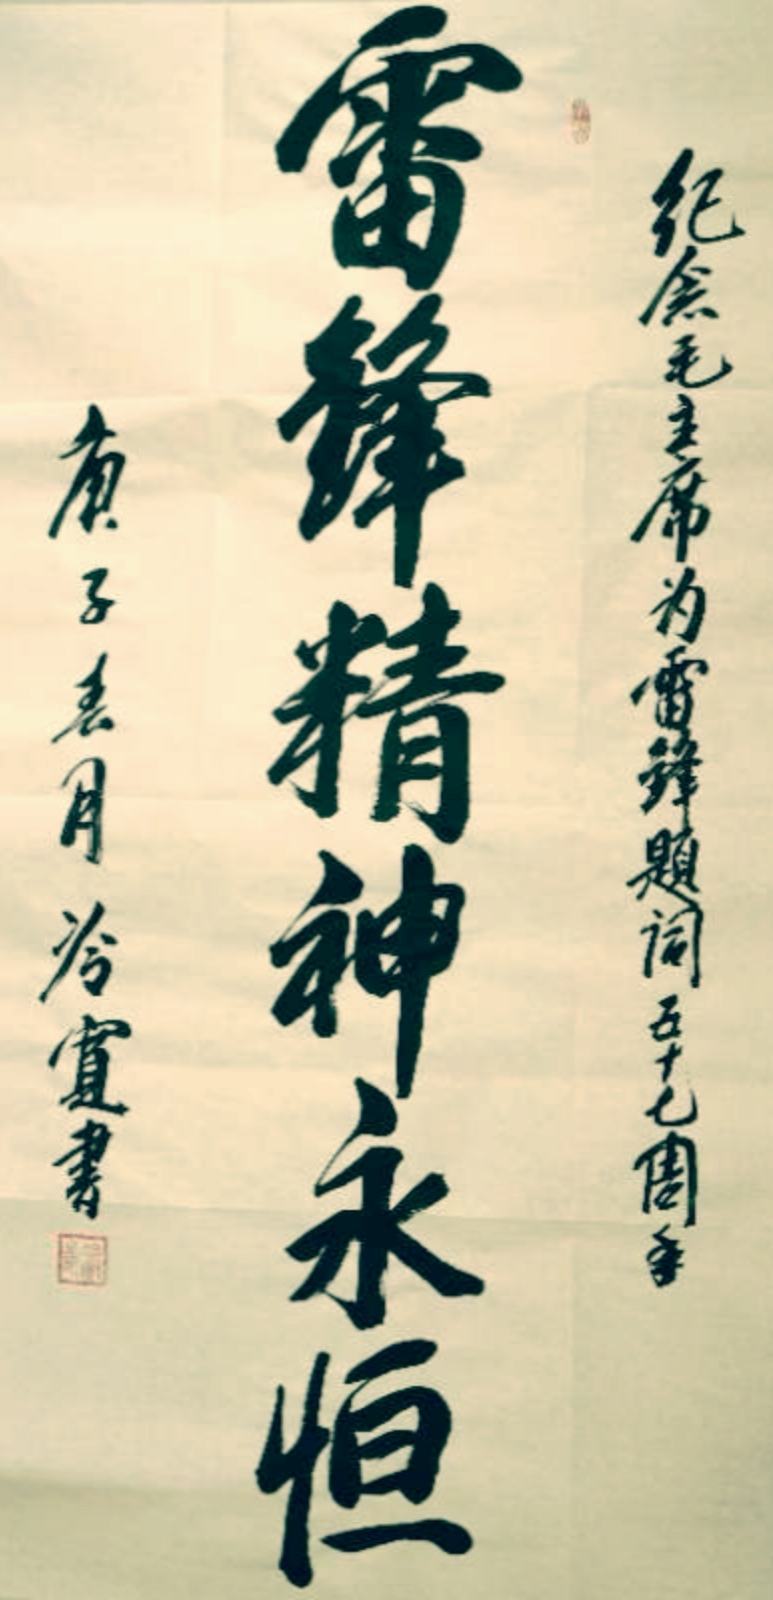 纪念毛主席为雷锋题词五十七周年
雷锋精神永恒
庚子春月冷寬書